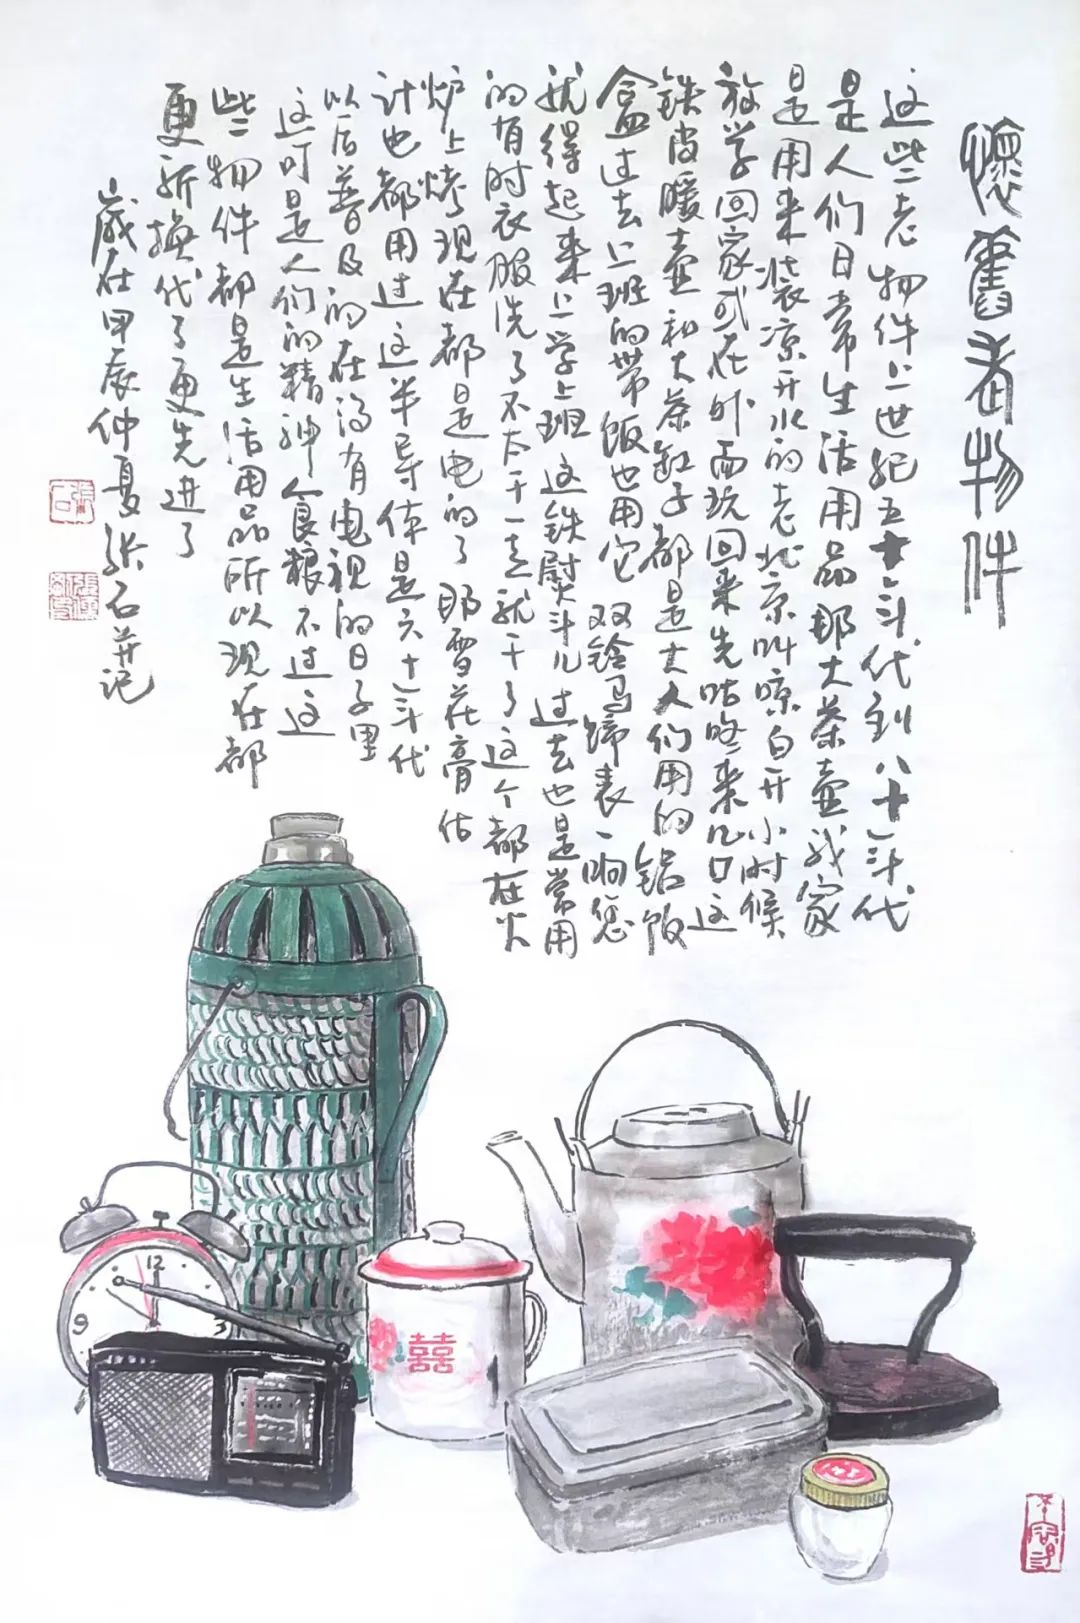 懷舊老物件
这些老物件上世纪五十年代到八十年代
是人们日常生活用品那大茶壶我家
是用来装凉开水的老北京叫凉白开小时候
放学回家或在外面玩回来先咕咚来几口这
铁皮暖壶和大茶缸子都是大人们用的铝饭
盒过去上班的带饭也用它双铃马蹄表一响您
就得起来上学上班这铁熨斗儿过去也是常用
的有时衣服洗了不太干一走就干了这个都在火
炉上烤现在都是电的了那雪花膏估
计也都用过这半导体是六十年代
以后普及的在没有电视的日子里
这可是人们的精神食粮不过这
些物件都是生活用品所以现在都
更新换代了更先进了
岁在甲辰仲夏张石并记
12
9
3
囍